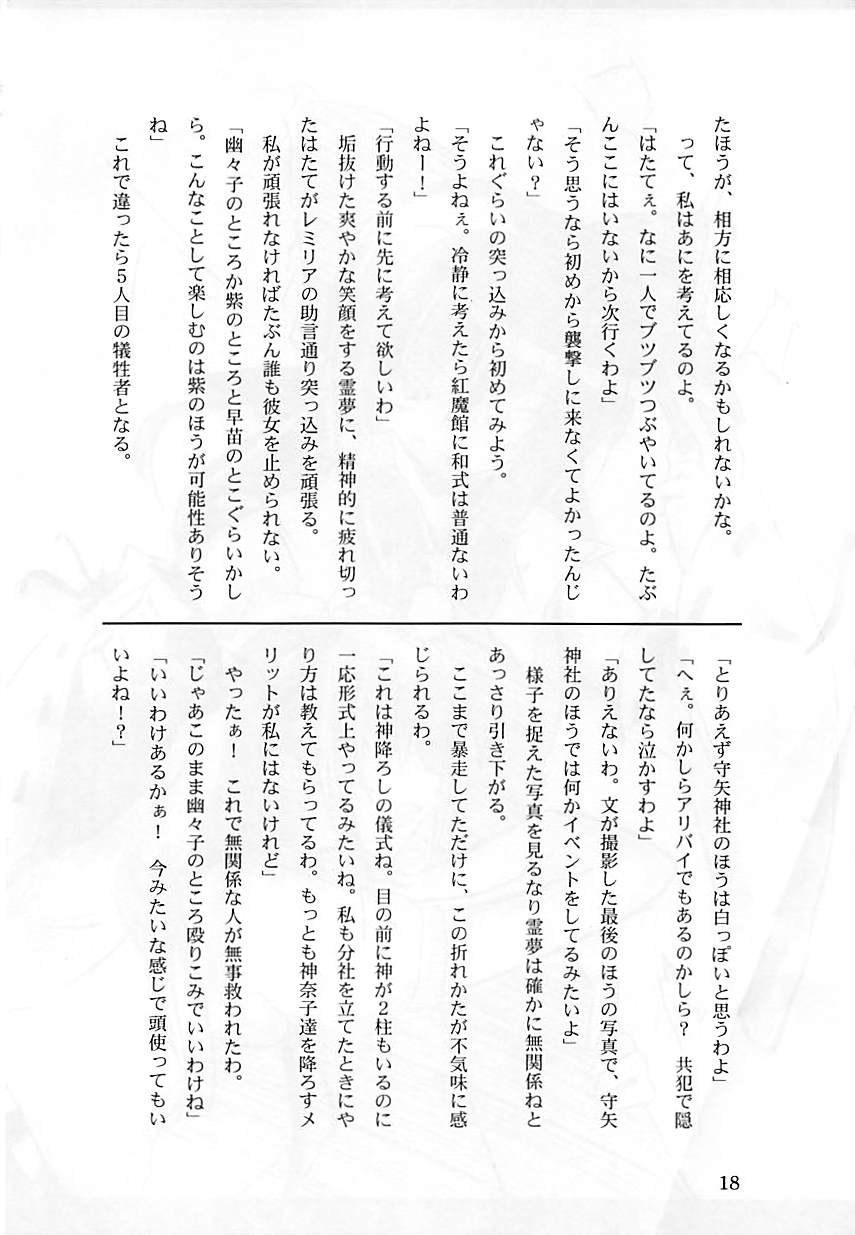 たほうが、相方に相応しくなるかもしれないかな。
って、私はあにを考えてるのよ。
「はたてぇ。なに一人でブツブツつぶやいてるのよ。たぶ
んここにはいないから次行くわよ」
「そう思うなら初めから襲撃しに来なくてよかったんじ
ゃない？」
これぐらいの突っ込みから初めてみよう。
「そうよねぇ。冷静に考えたら紅魔館に和式は普通ないわ
よねー！」
「行動する前に先に考えて欲しいわ」
垢抜けた爽やかな笑顔をする霊夢に、精神的に疲れ切っ
たはたてがレミリアの助言通り突っ込みを頑張る。
私が頑張れなければたぶん誰も彼女を止められない。
「幽々子のところか紫のところと早苗のとこぐらいかし
ら。こんなことして楽しむのは紫のほうが可能性ありそう
ね」
これで違ったら５人目の犠牲者となる。
「とりあえず守矢神社のほうは白っぽいと思うわよ」
「へぇ。何かしらアリバイでもあるのかしら？　共犯で隠
してたなら泣かすわよ」
「ありえないわ。文が撮影した最後のほうの写真で、守矢
神社のほうでは何かイベントをしてるみたいよ」
様子を捉えた写真を見るなり霊夢は確かに無関係ねと
あっさり引き下がる。
ここまで暴走してただけに、この折れかたが不気味に感
じられるわ。
「これは神降ろしの儀式ね。目の前に神が２柱もいるのに
一応形式上やってるみたいね。私も分社を立てたときにや
り方は教えてもらってるわ。もっとも神奈子達を降ろすメ
リットが私にはないけれど」
やったぁ！　これで無関係な人が無事救われたわ。
「じゃあこのまま幽々子のところ殴りこみでいいわけね」
「いいわけあるかぁ！　今みたいな感じで頭使ってもい
いよね！？」
18